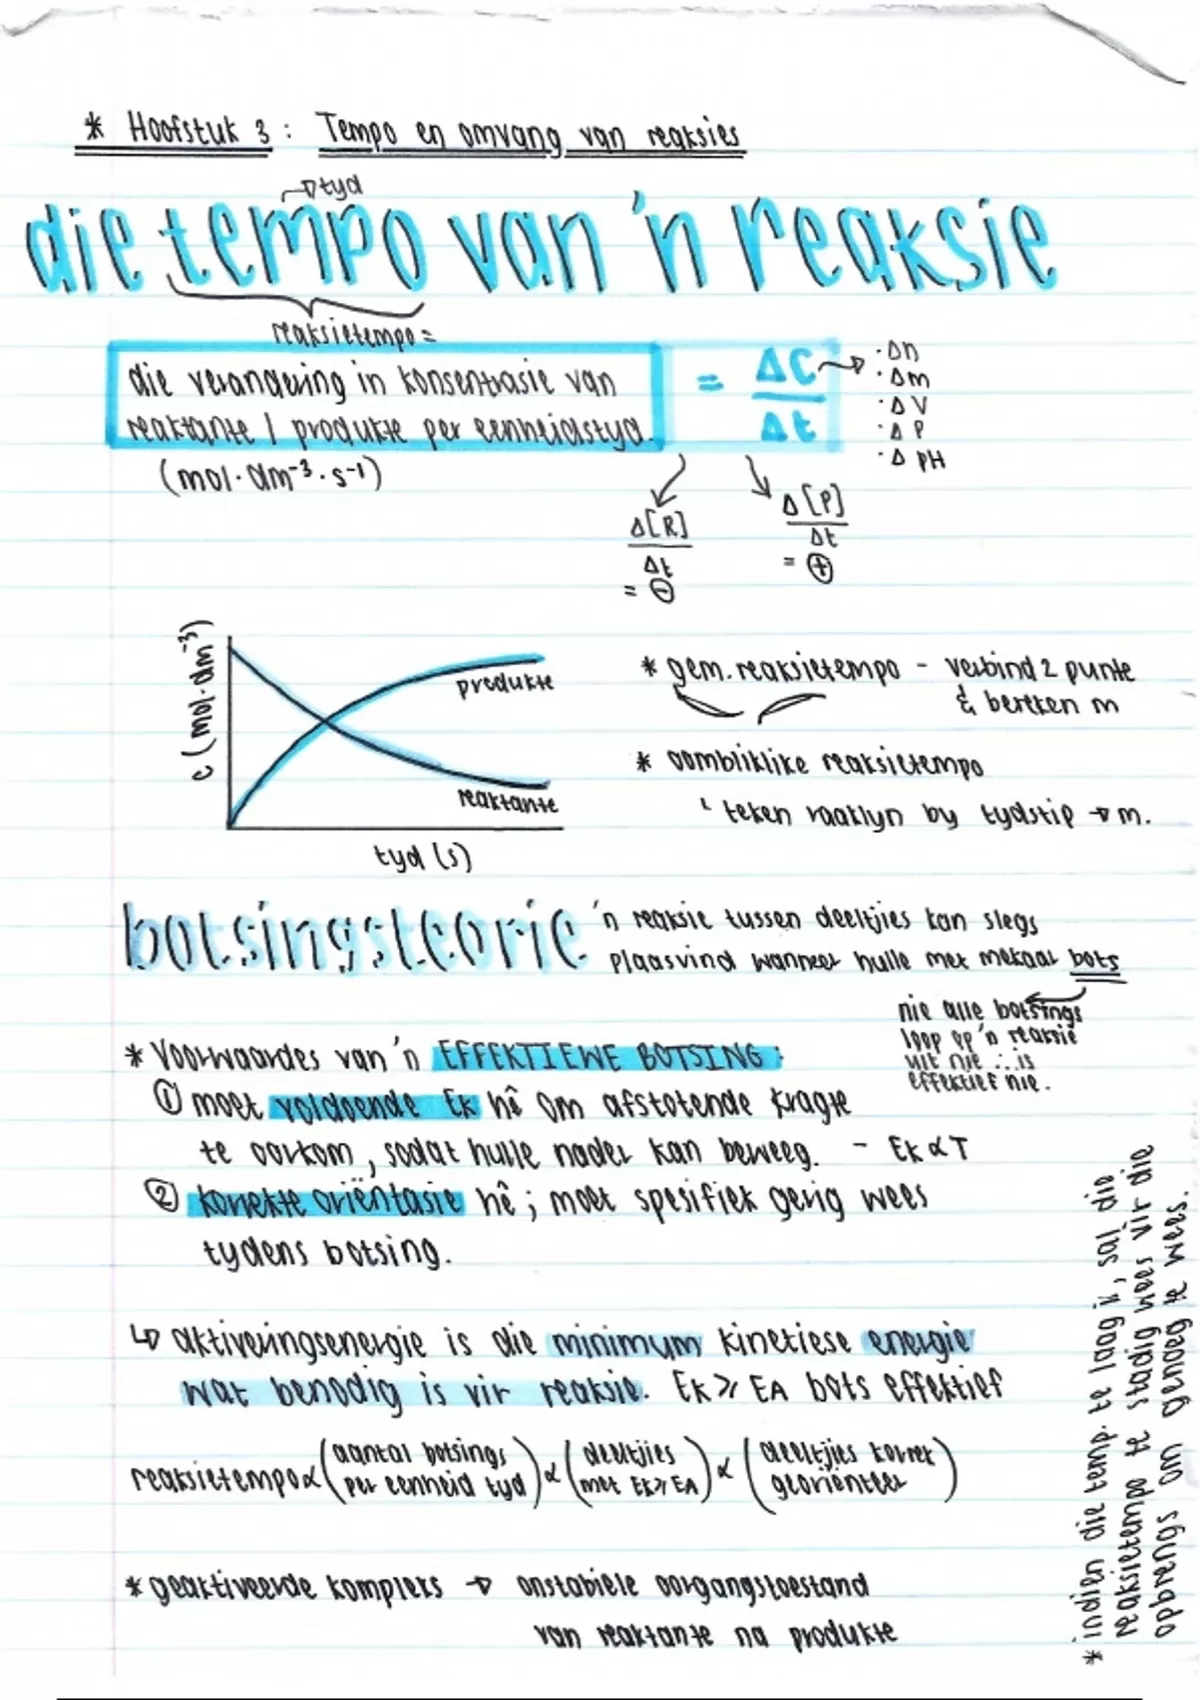 * Hoofstuk 3 : Tempo en omvang van reaksies
→ tyd
die tempo van 'n reaksie
reaksietempo =
die verandering in konsentrasie van
reaktante / produkte per eenheidstyd.
(mol·dm⁻³·s⁻¹)
= ΔC / Δt →
·Δn
·Δm
·ΔV
·ΔP
·Δ pH
Δ[R] / Δt
= ⊖
Δ[P] / Δt
= ⊕
c (mol·dm⁻³)
produkte
reaktante
tyd (s)
* gem. reaksietempo - verbind 2 punte
& bereken m
* oombliklike reaksietempo
teken raaklyn by tydstip → m.
botsingsteorie
'n reaksie tussen deeltjies kan slegs
plaasvind wanneer hulle met mekaar bots
nie alle botsings
loop op 'n reaksie
uit nie ∴ is
effektief nie.
* Voorwaardes van 'n EFFEKTIEWE BOTSING :
① moet voldoende Ek hê om afstotende kragte
te oorkom, sodat hulle nader kan beweeg. - Ek ∝ T
② korrekte oriëntasie hê ; moet spesifiek gerig wees
tydens botsing.
↳ aktiveringsenergie is die minimum kinetiese energie
wat benodig is vir reaksie. Ek ⩾ EA bots effektief
reaksietempo ∝ (aantal botsings per eenheid tyd) ∝ (deeltjies met Ek⩾EA) ∝ (deeltjies korrek georiënteer)
* geaktiveerde kompleks → onstabiele oorgangstoestand
van reaktante na produkte
* indien die temp. te laag is, sal die
reaksietempo te stadig wees vir die
opbrengs om genoeg te wees.